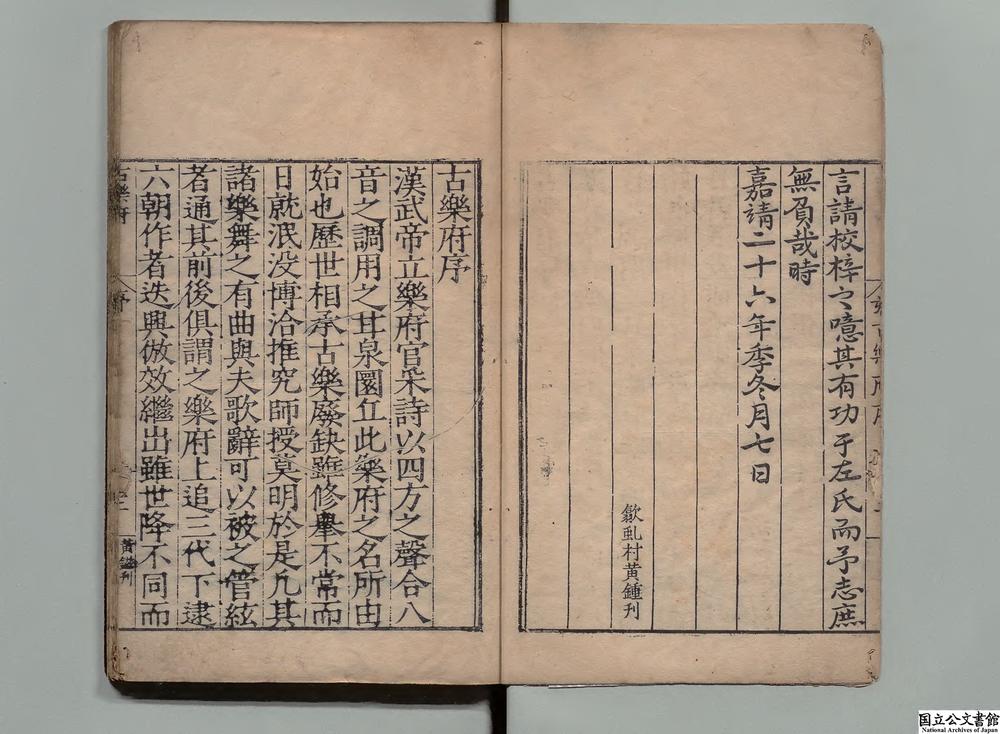 言請校梓之噫其有功于左氏而予志庶
無負哉時
嘉靖二十六年季冬月七日
歙虬村黃鍾刊
古樂府序
漢武帝立樂府官采詩以四方之聲合八
音之調用之甘泉圜丘此樂府之名所由
始也歷世相承古樂廢缺雖修舉不常而
日就泯没博洽推究師授莫明於是凡其
諸樂舞之有曲與夫歌辭可以被之管絃
者通其前後俱謂之樂府上追三代下逮
六朝作者迭興倣效繼出雖世降不同而
古樂府
序
黃鍾刊
国立公文書館
National Archives of Japan